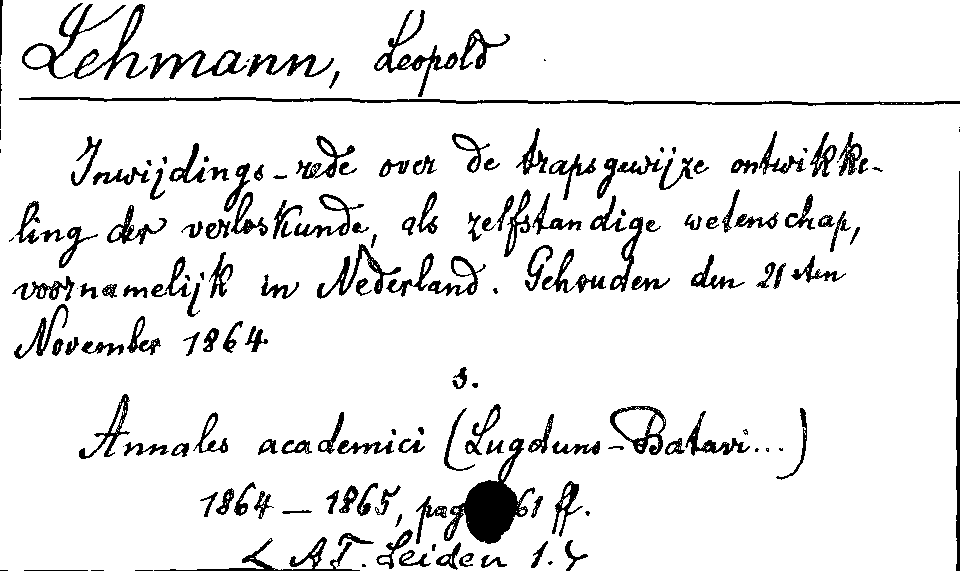 Lehmann, Leopold
Inwijdings-rede over de trapsgewijze ontwikke-
ling der verloskunde, als zelfstandige wetenschap,
voornamelijk in Nederland. Gehouden den 21sten
November 1864
s.
Annales academici (Lugduns-Batavi...)
1864 — 1865, pag 61 ff.
Leiden 1.